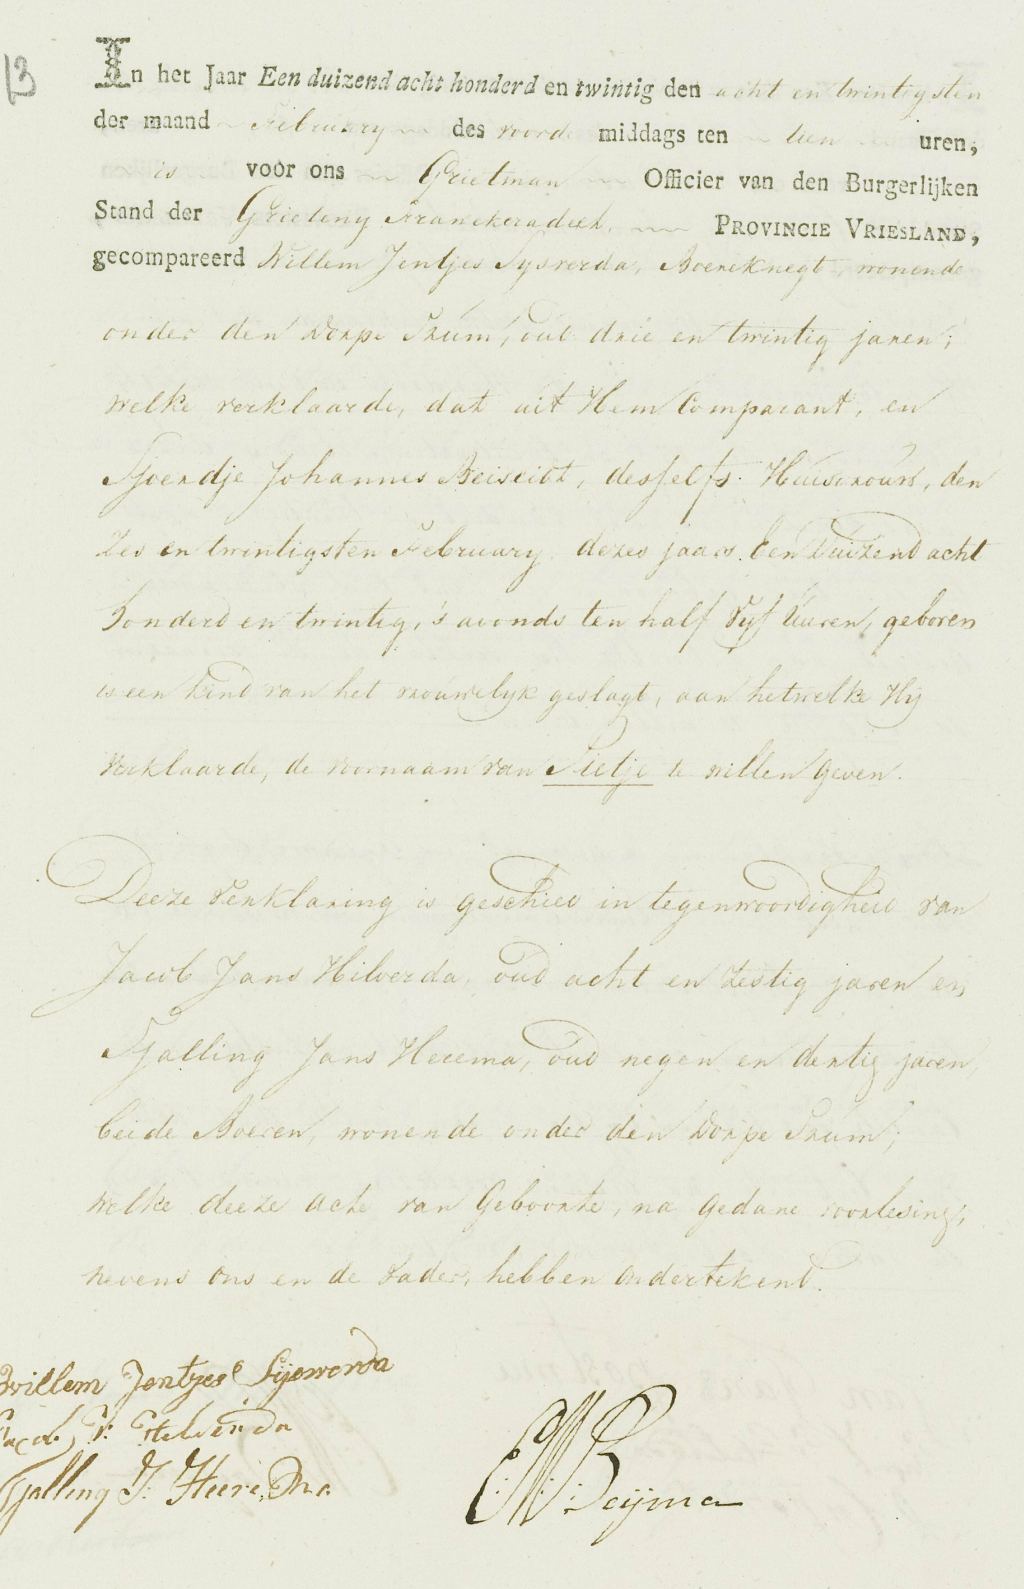 13
In het Jaar Een duizend acht honderd en twintig den acht en twintigsten
der maand February des voord middags ten tien uren,
is voor ons Grietman Officier van den Burgerlijken
Stand der Grieteny Franekeradeel, PROVINCIE VRIESLAND,
gecompareerd Willem Jentjes Syswerda, Boereknegt, wonende
onder den Dorpe Tzum, oud drie en twintig jaren;
welke verklaarde, dat uit Hem Comparant, en
Sjoerdje Johannes, desselfs Huisvrouw, den
Zes en twintigsten February dezes jaars Een Duizend acht
honderd en twintig, 's avonds ten half Vyf Uuren, geboren
is een kind van het vrouwelyk geslagt, aan hetwelke Hij
verklaarde, de voornaam van Pietje te willen geven.
Deeze verklaring is geschied in tegenwoordigheid van
Jacob Jans Hilverda, oud acht en zestig jaren en
Tjalling Jans Herema, oud negen en dertig jaren,
beide Boeren, wonende onder den Dorpe Tzum;
welke deeze acte van Geboorte, na gedane voorlesing,
nevens ons en de Vader, hebben ondertekend.
Willem Jentjes Sijswerda
Jacob J: Helverda
Tjalling J: Heerema
Beijma